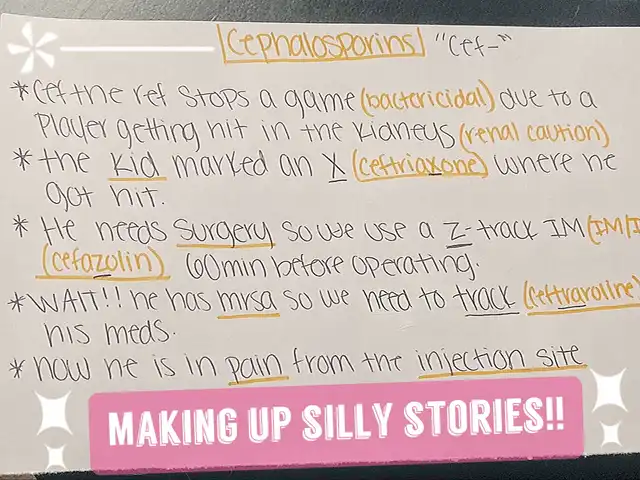 Cephalosporins "Cef-"
* Cef the ref stops a game (bactericidal) due to a
player getting hit in the kidneys (renal caution)
* the kid marked an X (ceftriaxone) where he
got hit.
* He needs surgery so we use a Z-track IM (IM/I
(cefazolin) 60min before operating.
* WAIT!! he has mrsa so we need to track (ceftraroline)
his meds.
* now he is in pain from the injection site
MAKING UP SILLY STORIES!!